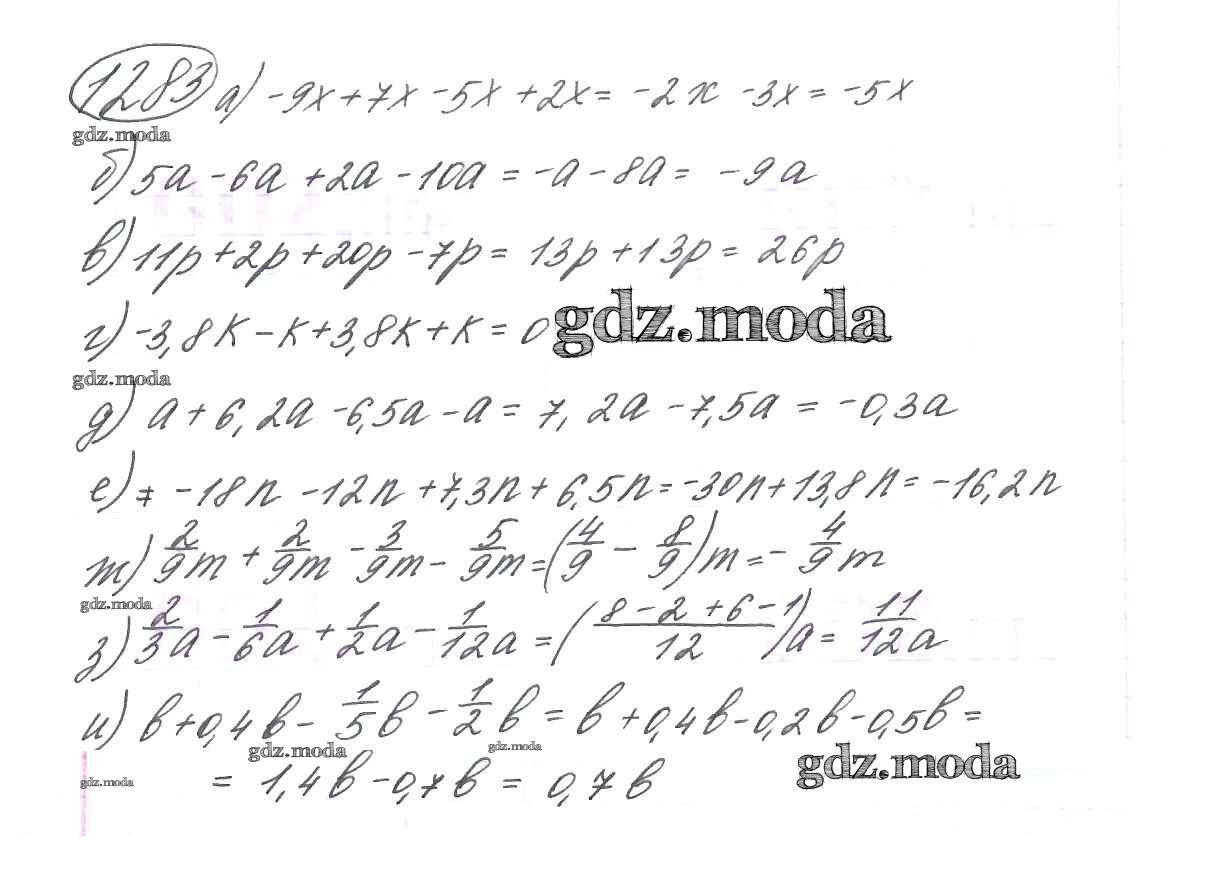 1283 а) -9x+7x -5x +2x = -2x -3x = -5x
gdz.moda
б) 5a -6a +2a -10a = -a -8a = -9a
в) 11p+2p+20p -7p = 13p+13p = 26p
г) -3,8k-k+3,8k+k = 0 gdz.moda
gdz.moda
д) a+6,2a -6,5a -a = 7,2a -7,5a = -0,3a
е) = -18n -12n +7,3n+6,5n=-30n+13,8n=-16,2n
ж) 2/9m + 2/9m - 3/9m - 5/9m = (4/9 - 8/9)m = - 4/9m
gdz.moda
з) 2/3a - 1/6a + 1/2a - 1/12a = ((8-2+6-1)/12)a = 11/12a
и) b+0,4b- 1/5b - 1/2b = b+0,4b-0,2b-0,5b =
gdz.moda gdz.moda
= 1,4b-0,7b = 0,7b gdz.moda
gdz.moda